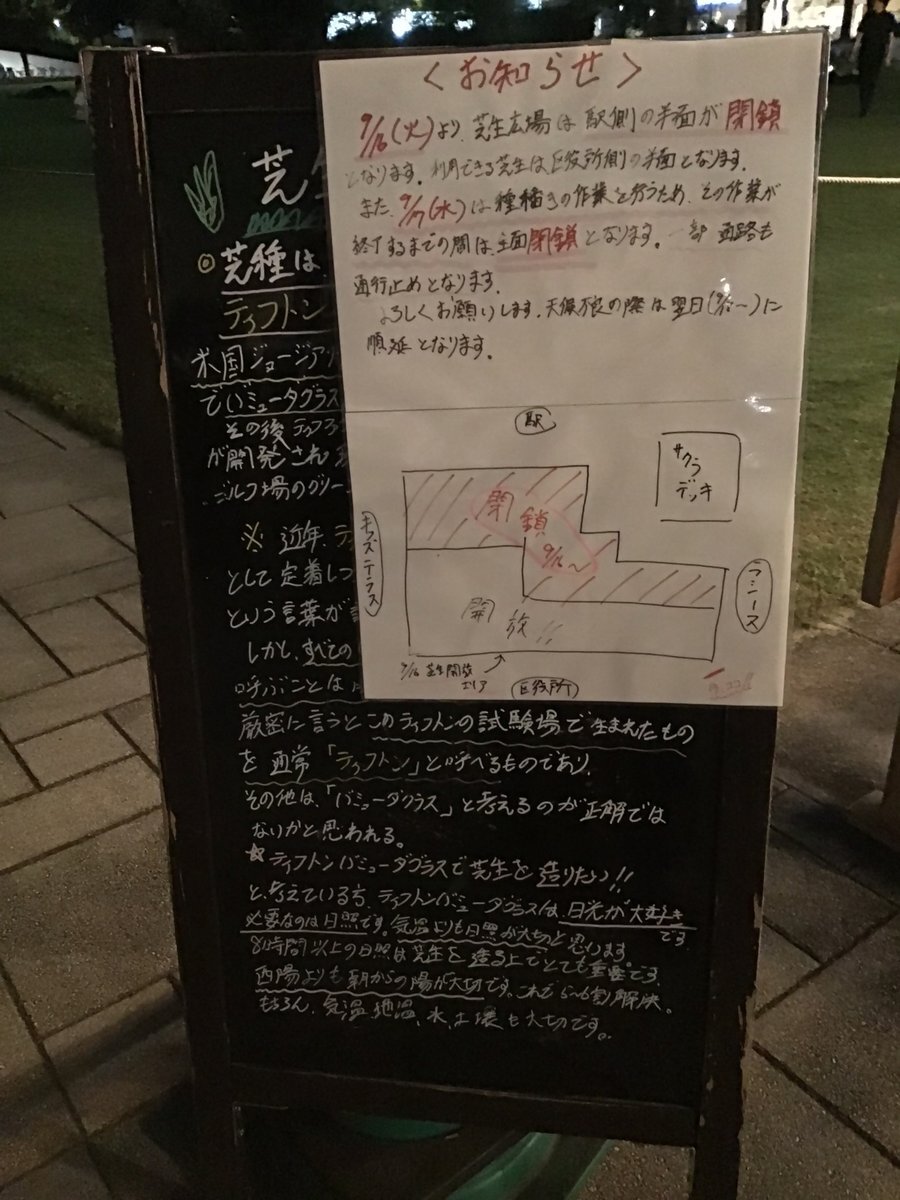 <お知らせ>
9/16(火)より、芝生広場は駅側の半面が閉鎖
となります。利用できる芝生は区役所側の半面となります。
また、9/17(水)は種播きの作業を行うため、その作業が
終了するまでの間は、全面閉鎖となります。一部通路も
通行止めとなります。
よろしくお願いします。天候不良の際は翌日(9/18〜)に
順延となります。
駅
サクラ
デッキ
閉鎖
9/16〜
キッズテラス
ラシーヌ
開放!!
9/16 芝生開放
エリア
区役所
芝
◎芝種は、
ティフトン
米国ジョージア
でバミューダグラス
その後ティフ
が開発され
ゴルフ場のグリー
※近年、テ
として定着しつ
という言葉が
しかし、すべての
呼ぶことは
厳密に言うとこのティフトンの試験場で生まれたもの
を通常「ティフトン」と呼べるものであり、
その他は、「バミューダグラス」と考えるのが正解では
ないかと思われる。
☆ティフトンバミューダグラスで芝生を造りたい!!
と、考えている方、ティフトンバミューダグラスは、日光が大好き
です
必要なのは日照です。気温よりも日照が大切と思います
8時間以上の日照は芝生を造る上でとても重要です。
西陽よりも朝からの陽が大切です。これで 解決。
もちろん、気温、地温、水、土壌も大切です。